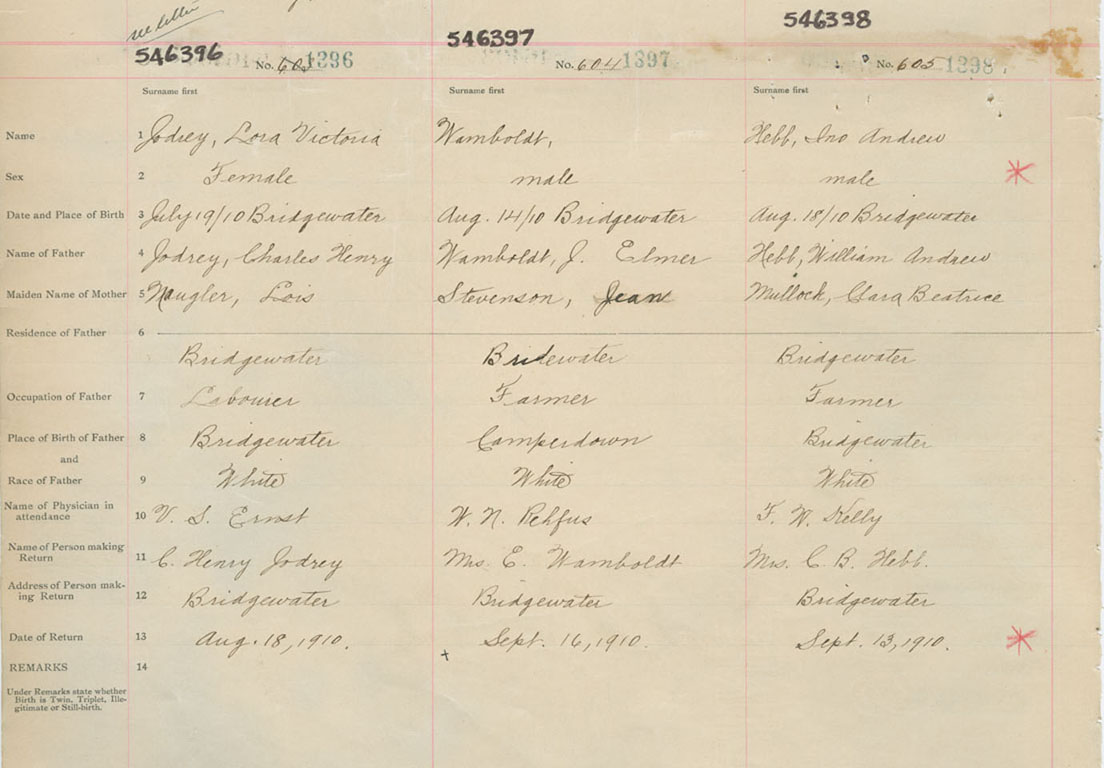 see letter
546396 546397 546398
No. 603 1396 No. 604 1397 No. 605 1398
Surname first Surname first Surname first
Name 1 Jodrey, Lora Victoria Wamboldt, Hebb, Ino Andrew
Sex 2 Female male male
Date and Place of Birth 3 July 19/10 Bridgewater Aug. 14/10 Bridgewater Aug. 18/10 Bridgewater
Name of Father 4 Jodrey, Charles Henry Wamboldt, J. Elmer Hebb, William Andrew
Maiden Name of Mother 5 Naugler, Lois Stevenson, Jean Mullock, Clara Beatrice
Residence of Father 6
Bridgewater Bridewater Bridgewater
Occupation of Father 7 Labourer Farmer Farmer
Place of Birth of Father 8 Bridgewater Camperdown Bridgewater
and
Race of Father 9 White White White
Name of Physician in
attendance 10 V. S. Ernst W. N. Rehfus F. W. Kelly
Name of Person making
Return 11 C. Henry Jodrey Mrs. E. Wamboldt Mrs. C. B. Hebb.
Address of Person mak-
ing Return 12 Bridgewater Bridgewater Bridgewater
Date of Return 13 Aug. 18, 1910. Sept. 16, 1910. Sept. 13, 1910.
REMARKS 14
Under Remarks state whether
Birth is Twin, Triplet, Ille-
gitimate or Still-birth.